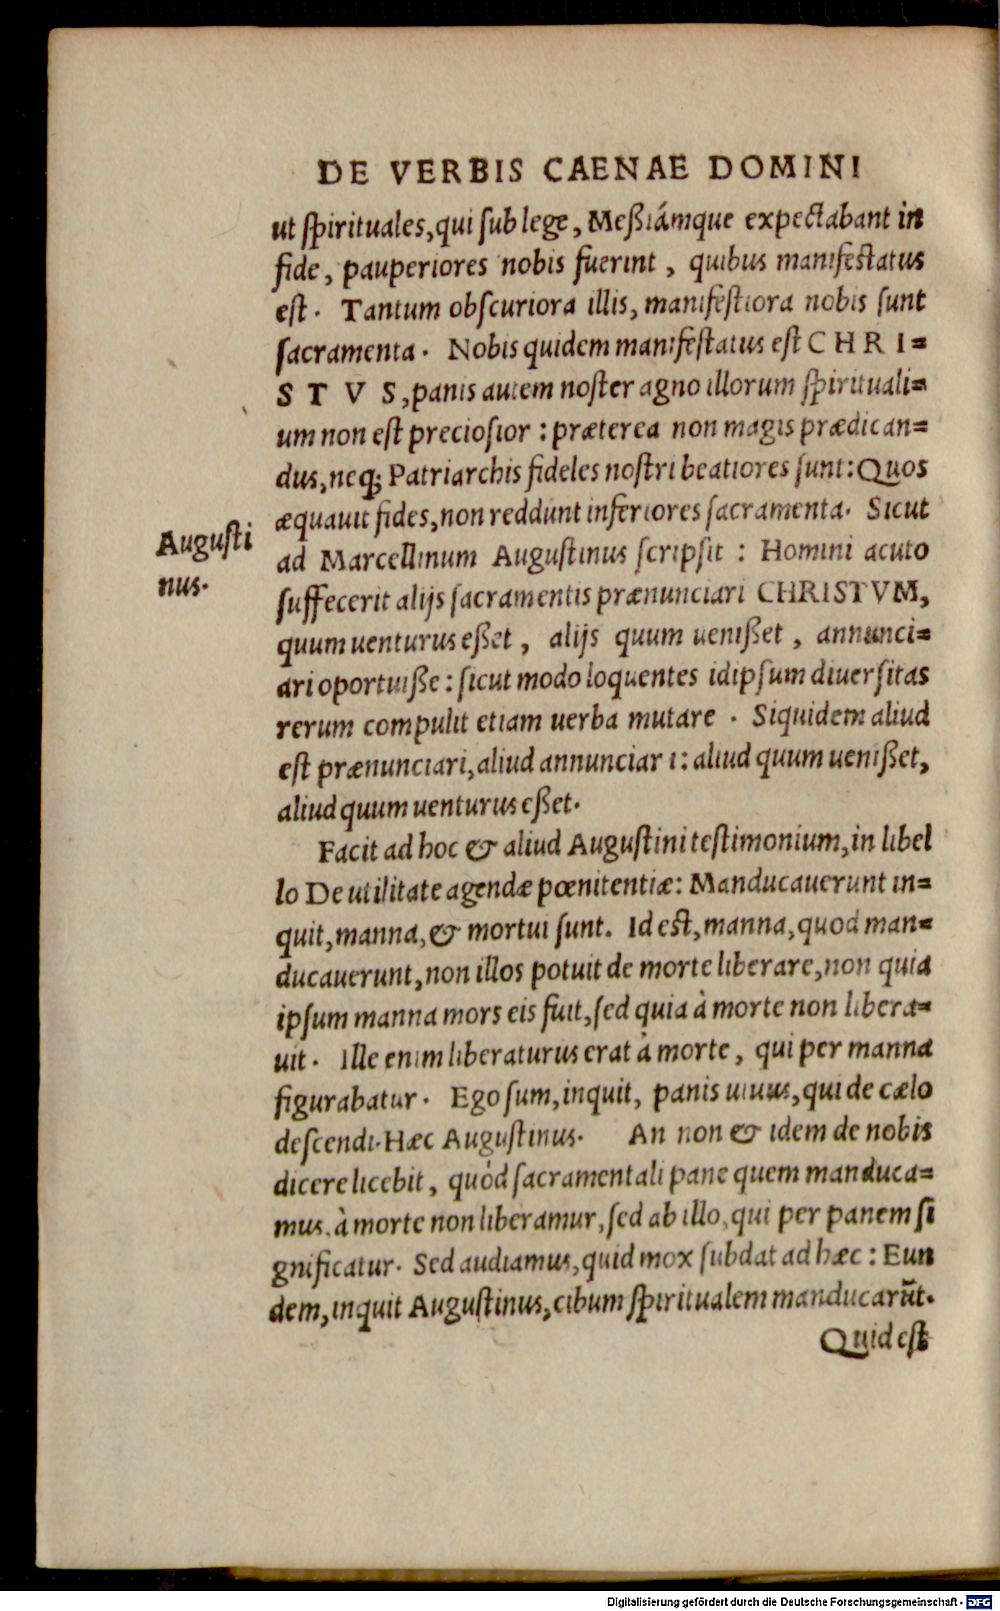 DE VERBIS CAENAE DOMINI
ut ſpirituales, qui ſub lege, Meßiámque expectabant in
fide, pauperiores nobis fuerint, quibus manifeſtatus
eſt. Tantum obſcuriora illis, manifeſtiora nobis ſunt
ſacramenta. Nobis quidem manifeſtatus eſt C H R I=
S T V S, panis autem noſter agno illorum ſpirituali=
um non eſt precioſior: præterea non magis prædican=
dus, neq; Patriarchis fideles noſtri beatiores ſunt: Quos
æquauit fides, non reddunt inferiores ſacramenta. Sicut
Auguſti
nus.
ad Marcellinum Auguſtinus ſcripſit: Homini acuto
ſuffecerit alijs ſacramentis prænunciari CHRISTVM,
quum uenturus eßet, alijs quum uenißet, annunci=
ari oportuiße: ſicut modo loquentes idipſum diuerſitas
rerum compulit etiam uerba mutare. Siquidem aliud
eſt prænunciari, aliud annunciari: aliud quum uenißet,
aliud quum uenturus eßet.
Facit ad hoc & aliud Auguſtini teſtimonium, in libel
lo De utilitate agendæ pœnitentiæ: Manducauerunt in=
quit, manna, & mortui ſunt. Id eſt, manna, quod man=
ducauerunt, non illos potuit de morte liberare, non quia
ipſum manna mors eis fuit, ſed quia à morte non libera=
uit. Ille enim liberaturus erat à morte, qui per manna
figurabatur. Ego ſum, inquit, panis uiuus, qui de cælo
deſcendi. Hæc Auguſtinus. An non & idem de nobis
dicere licebit, quòd ſacramentali pane quem manduca=
mus, à morte non liberamur, ſed ab illo, qui per panem ſi
gnificatur. Sed audiamus, quid mox ſubdat ad hæc: Eun
dem, inquit Auguſtinus, cibum ſpiritualem manducarūt.
Quid eſt
Digitalisierung gefördert durch die Deutsche Forschungsgemeinschaft - DFG